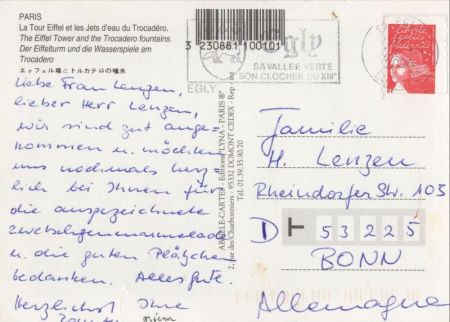 PARIS
La Tour Eiffel et les Jets d'eau du Trocadéro.
The Eiffel Tower and the Trocadero fountains.
Der Eiffelturm und die Wasserspiele am
Trocadero
エッフェル塔とトルカテロの噴水
3 230881 100101
Egly
SA VALLÉE VERTE
SON CLOCHER DU XIIe
EGLY
Liebe Frau Lenzen,
lieber Herr Lenzen,
wir sind gut ange-
kommen u. möchten
uns nochmals herz-
lich bei Ihnen für
die ausgezeichnete
u. die guten Plätzchen
bedanken. Alles Gute.
Herzlichst Ihre
2, rue des Charbonniers - 95332 DOMONT CEDEX - Rep. Inc
Tél. 01.39.35.90.70
Familie
H. Lenzen
Rheindorfer Str. 103
D 53225
BONN
Allemagne